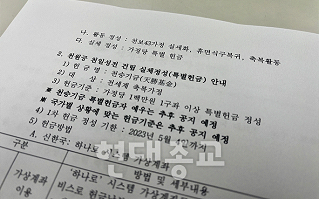 나. 활동 정성 : 천보43가정 실세화, 휴면식구복귀, 축복활동
다. 실체 정성 : 가정당 특별 헌금
2. 천원궁 천일성전 건립 실체정성(특별헌금) 안내
1) 헌 금 명 : 천승기금(天勝基金)
2) 대 상 : 전세계 축복가정
3) 헌금기준 : 가정당 1백만원 1구좌 이상 특별헌금 정성
※ 천승기금 특별헌금자 예우는 추후 공지 예정
※ 국가별 상황에 맞는 헌금기준은 추후 공지 예정
4) 1차 헌금 정성 기한 : 2023년 5월 까지
5) 헌금방법
A. 신한국: 하나로 시스템 가상계좌
구분
방법 및 세부내용
가상계좌
이용
'하나로' 시스템 가상계좌
비스로 헌금
현대종교